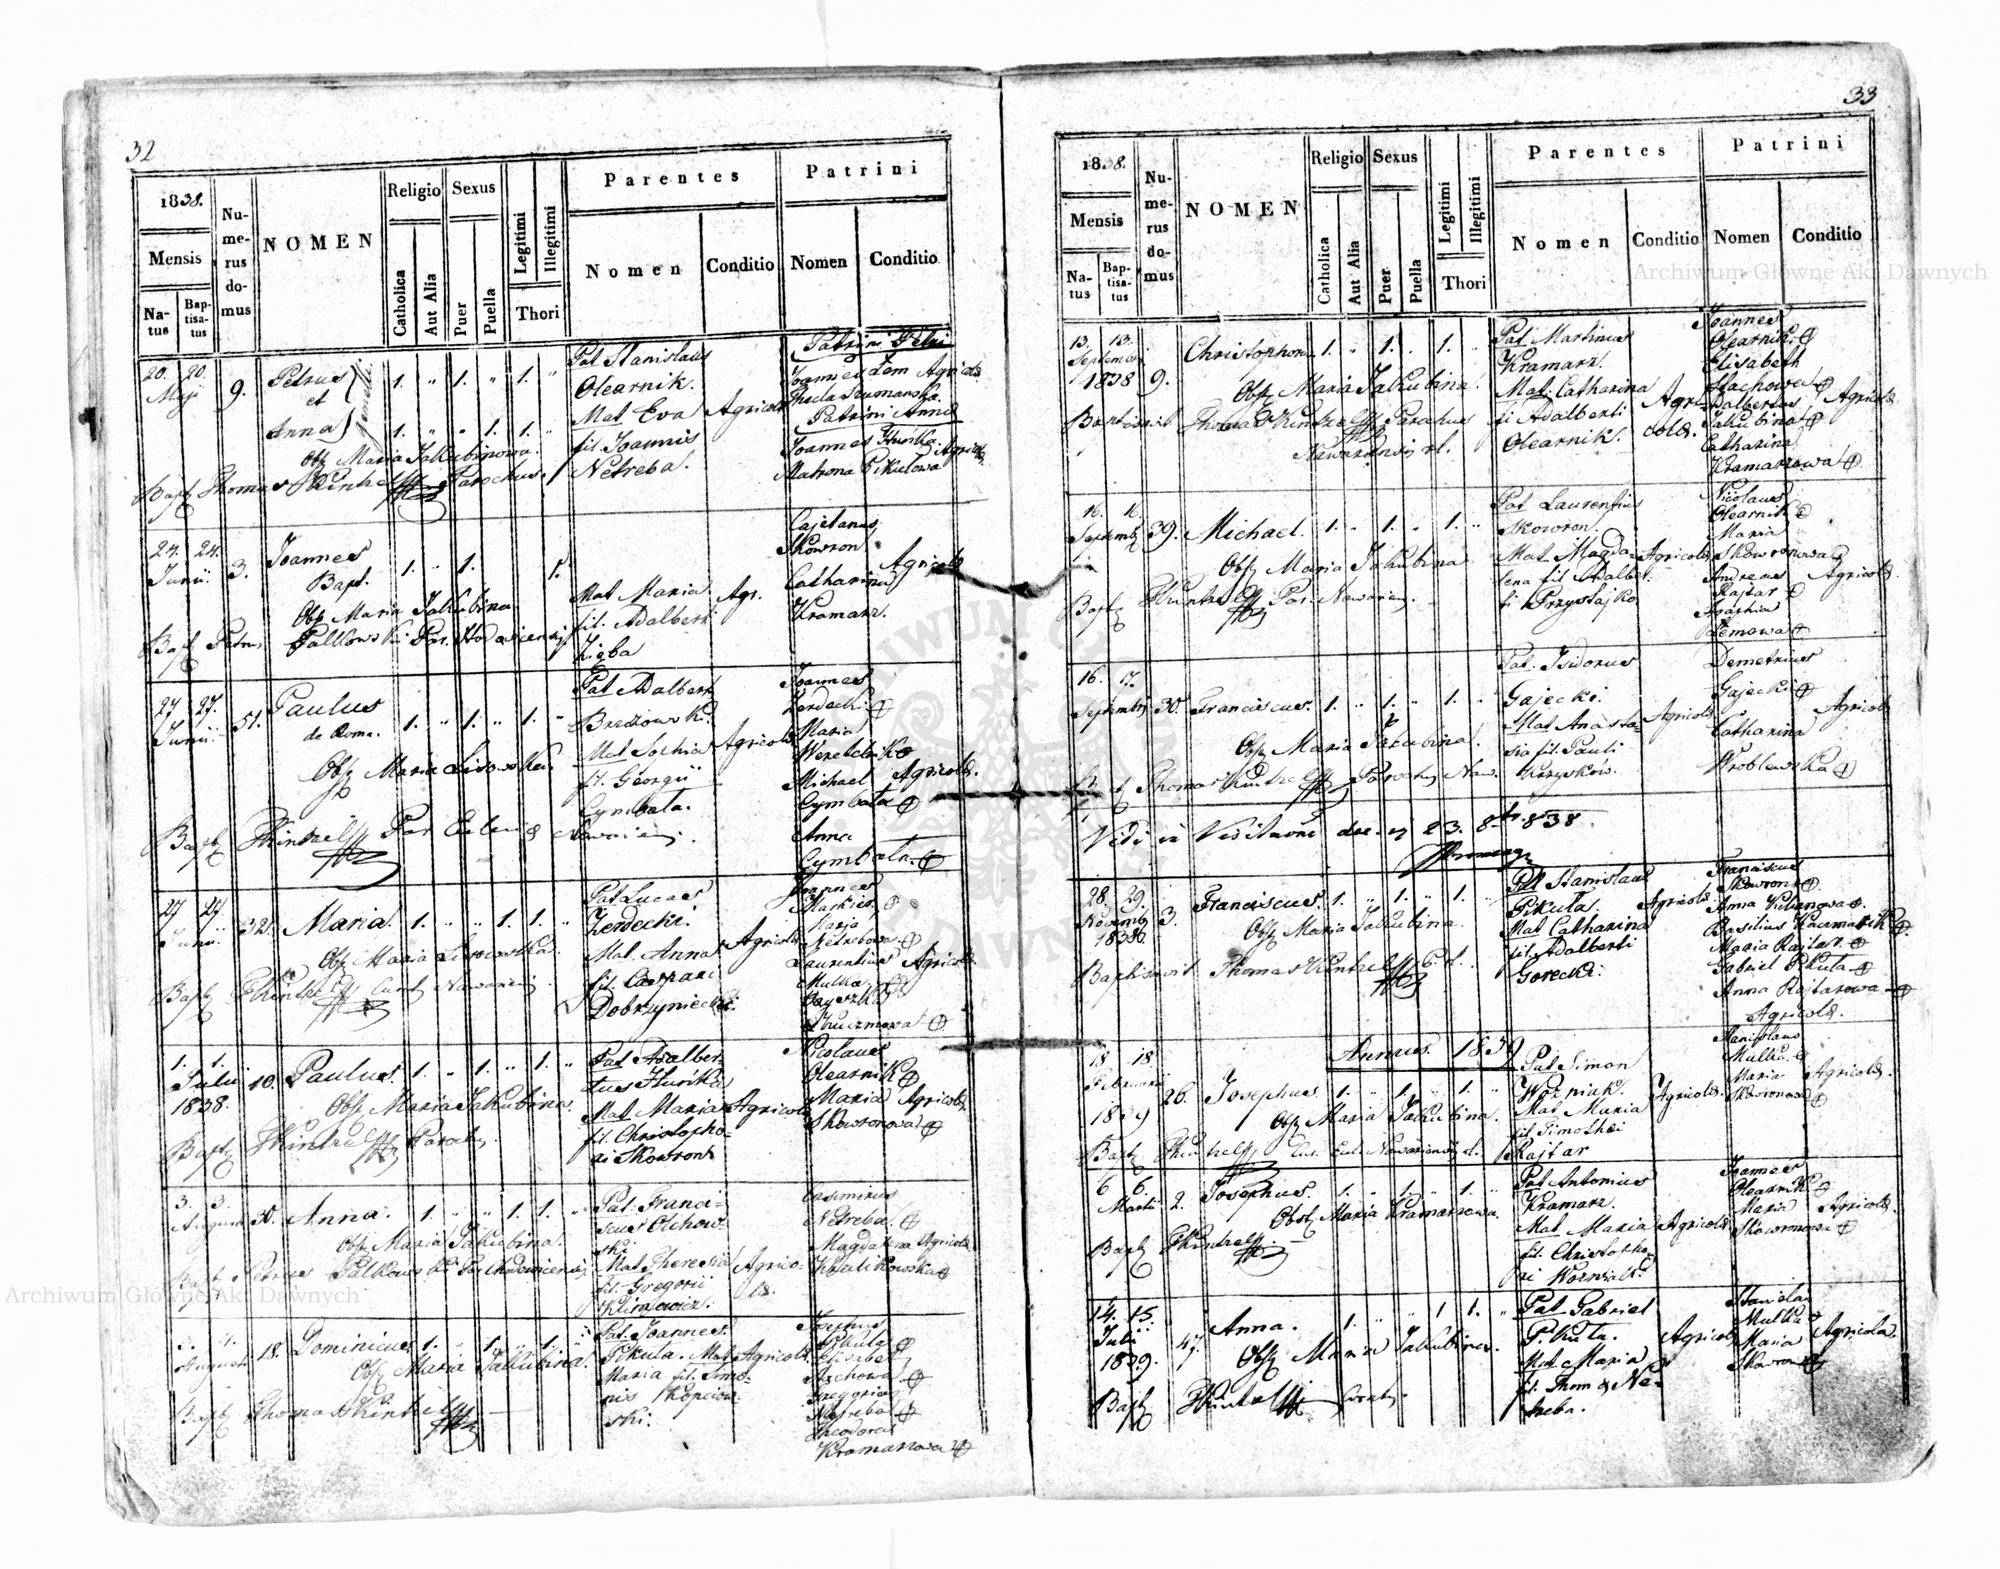 32
1838.
Mensis
Na-
tus
Bap-
tisa-
tus
Nu-
me-
rus
do-
mus
NOMEN
Religio
Catholica
Aut Alia
Sexus
Puer
Puella
Legitimi
Illegitimi
Thori
Parentes
Nomen
Conditio
Patrini
Nomen
Conditio
20. 20.
Maji
9.
Petrus
et
Anna
1. " 1. " 1. "
1. " " 1. 1.
Obst Maria Jakubinowa.
Bapt Thomas Kintzel Parochus.
Pat Stanislaus
Olearnik.
Mat Eva
fil. Joannis
Netreba.
Agricola
Patrini Petri
Joannes Lem Agricola
Thecla Szumanska.
Patrini Anna
Joannes Hurka. Agricola
Matrona Pikulowa
24. 24.
Junii.
3.
Joannes
Bapt.
1. " 1. 1.
Obst Maria Jakubina.
Bapt Petrus Palkowski Par. Hodoviciensis
Mat Maria
fil. Adalberti
Zięba
Agr.
Cajetanus
Skowron
Catharina
Kramarz.
Agricola
27. 27.
Junii.
51.
Paulus
de Roma.
1. " 1. " 1. "
Obst Maria Lisowska.
Bapt Kintzel Par
Pat Adalbert
Brzezowski.
Mat Sophia
fil. Georgii
Cymbata.
Agricola
Joannes
Zerdecki.
Maria
Michael
Cymbata
Anna
Cymbata.
Agricola.
27 27.
Junii.
32.
Maria.
1. " " 1. 1. "
Obst Maria Lisowska.
Bapt Kintzel
Pat Lucas
Zerdecki.
Mat. Anna
fil. Caspari
Dobrzyniecki.
Agricola
Joannes
Maria
Netrebowa.
Laurentius
Mulka
Kuczmowa
Agricola.
1. 1.
Julii
1838.
10.
Paulus.
1. " 1. " 1. "
Obst Maria Jakubina.
Bapt Kintzel Paroch.
Pat Adalber-
tus Hurka
Mat Maria
fil. Christopho-
ri Skowron
Agricola
Nicolaus
Olearnik
Maria
Skowronowa
Agricola.
3. 3.
Augusti
30.
Anna.
1. " " 1. 1. "
Obst Maria Jakubina.
Bapt Petrus Palkowski Par Hodoviciensis
Pat. Franci-
scus Olchow-
ski
Mat Theresia
fil. Gregorii
Klimowicz.
Agrico-
la.
Casimirus
Netreba.
Magdalena
Agricola
3. 4.
Augusti
18.
Dominicus
1. " 1. " 1. "
Obst Maria Jakubina.
Bapt Thomas Kintzel
Pat. Joannes
Pikula. Mat
Maria fil. Simo-
nis Skopcow-
ski.
Agricola.
Josephus
Pikula
Elisabet
Gregorius
Netreba
Theodora
Kramarzowa
33
1838.
Mensis
Na-
tus
Bap-
tisa-
tus
Nu-
me-
rus
do-
mus
NOMEN
Religio
Catholica
Aut Alia
Sexus
Puer
Puella
Legitimi
Illegitimi
Thori
Parentes
Nomen
Conditio
Patrini
Nomen
Conditio
13. 13.
Septembr
1838
9.
Christophorus
1. " 1. . 1. "
Obst Maria Jakubina.
Baptisavit Thomas Kintzel Parochus
Nawariensis
Pat Martinus
Kramarz.
Mat. Catharina
fi Adalberti
Olearnik.
Agri-
cola.
Joannes
Olearnik.
Elisabeth
Stachowa
Adalbertus
Jakubina
Catharina
Kramarzowa
Agricola.
16. 16.
Septembr
39.
Michael.
1. " 1. " 1. "
Obst Maria Jakubina
Bapt Kintzel Par. Nawarien.
Pat Laurentius
Skowron.
Mat. Magda-
lena fil Adalber-
ti Przystajko
Agricola
Nicolaus
Olearnik
Maria
Skowronowa
Andreas
Rajtar
Sophia
Lemowa
Agricola.
16. 17.
Septembr
30.
Franciscus.
1. " 1. " 1. "
Obst Maria Jakubina.
Bapt Thomas Kintzel Parochus Naw.
Pat. Isidorus
Gajecki.
Mat. Anasta-
sia fil. Pauli
Krzysków.
Agricola.
Demetrius
Gajecki
Catharina
Wroblewska
Agricola
Vidi in Visitatione dec. 23. 8br 838.
28. 29.
Novembr
1838.
3.
Franciscus.
1. " 1. " 1. "
Obst Maria Jakubina.
Baptisavit Thomas Kintzel
Pat Stanislaus
Pikula.
Mat Catharina
fil. Adalberti
Gorecki.
Agricola
Franciscus
Skowron
Anna
Basilius Kaczmarik
Maria Rajtar.
Gabriel Pikula
Anna Rajtarowa
Agricola.
Annus. 1839
18 18.
Februarii
1839
26.
Josephus.
1. " 1. " 1. "
Obst Maria Jakubina.
Bapt Kintzel
Pat Simon
Wozniak.
Mat Maria
fil Timothei
Rajtar
Agricola.
Stanislaus
Mulka.
Maria
Skowronowa
Agricola.
6 6.
Martii
2.
Josephus.
1. " 1. " 1. "
Obst Maria Kramarzowa.
Bapt Kintzel
Pat Antonius
Kramarz.
Mat Maria
fil. Christopho-
ri Wozniak.
Agricola.
Joannes
Olearnik
Maria
Skowronowa
Agricola.
14. 15.
Julii
1839.
47.
Anna.
1. " " 1 1. "
Obst Maria Jakubina.
Bapt Kintzel
Pat Gabriel
Pikula.
Mat Maria
fil. Thoma Ne-
treba.
Agricola
Stanislaus
Mulka
Maria
Agricola.
Archiwum Główne Akt Dawnych
Archiwum Główne Akt Dawnych